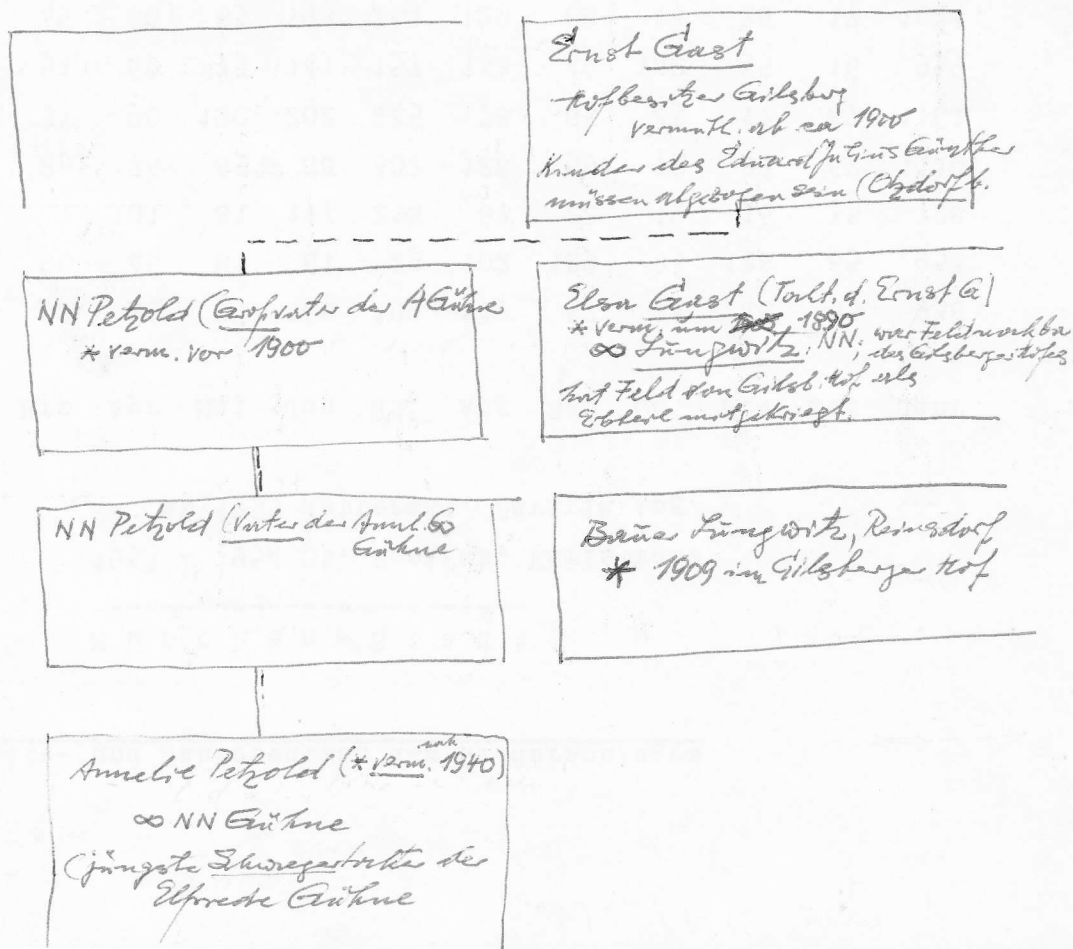 Ernst Gast
Hofbesitzer Gilsberg
vermutl. ab ca 1900
Kinder des Eduard Julius Günther
müssen abgezogen sein (Otzdorf b.
NN Petzold (Großvater der A Gühne
* verm. vor 1900
Elsa Gast (Tocht. d. Ernst G)
* verm. um 1890
∞ Lungwitz, NN, war Feldnachba
des Gilsberger Hofes
hat Feld von Gilsb. Hof als
Erbteil mitgekriegt.
NN Petzold (Vater der Annl. ∞
Gühne
Bauer Lungwitz, Reinsdorf
* 1909 im Gilsberger Hof
Annelie Petzold (* verm. nach 1940)
∞ NN Gühne
(jüngste Schwiegertochter der
Elfriede Gühne